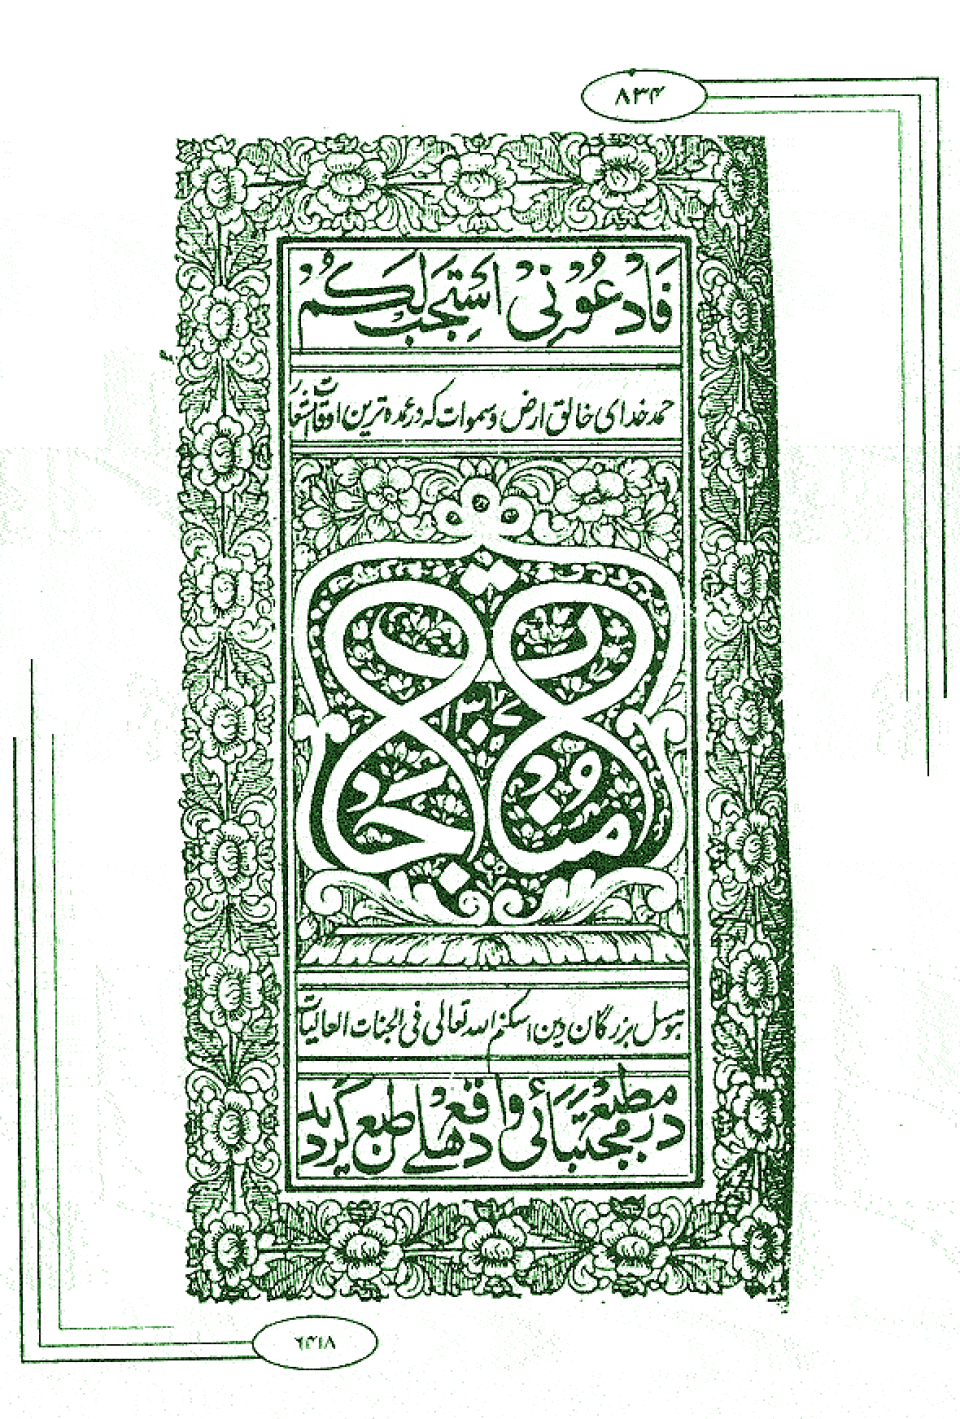 ۸۳۴
فَادْعُوْنِیْ اَسْتَجِبْ لَکُمْ
حمد خدای خالق ارض و سموات که در عمده ترین اوقات
۱۳۰۷
بتوسل بزرگان دین اسکنهم الله تعالی فی الجنات العالیات
در مطبع مجتبائی واقع دهلی طبع گردید